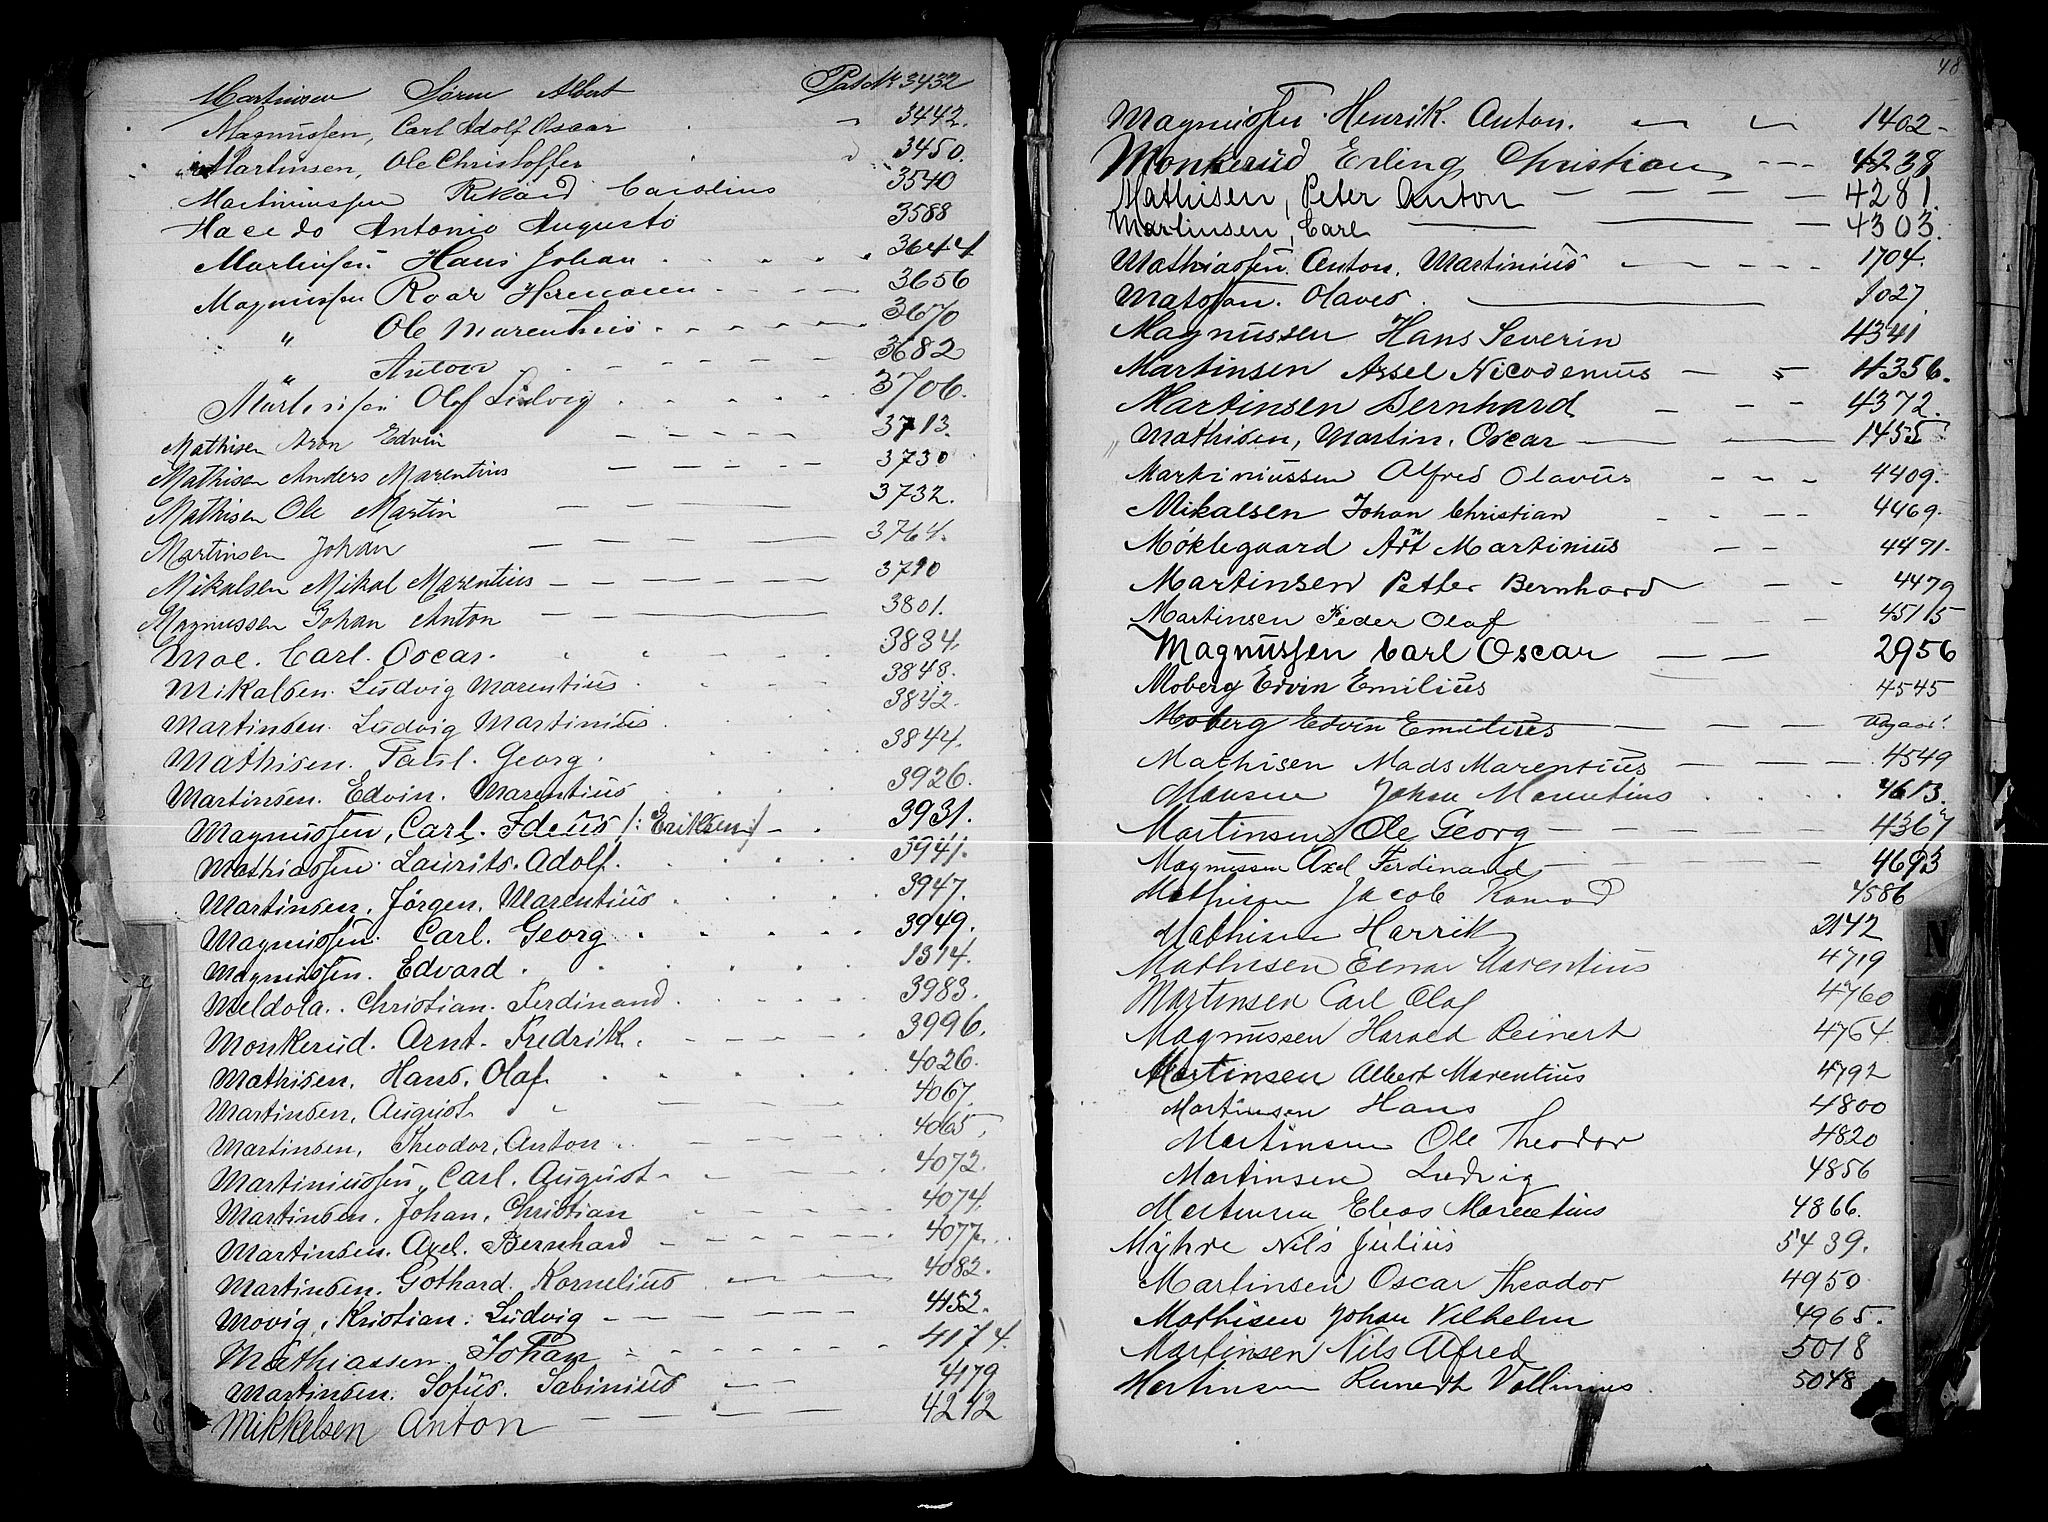 Martinsen Sören Albert Pat Nr 3432
Magnussen, Carl Adolf Oscar 3442.
Martinsen, Ole Christoffer 3450.
Martiniussen Rikard Carolius 3540
Macedo Antonio Augusto 3588
Martinsen Hans Johan 3644
Magnussen Roar Hermann 3656
" Ole Marenthius 3670
" Anton 3682
Martinsen Olof Ludvig 3706.
Mathisen Aron Edvin 3713.
Mathisen Anders Marentius 3730
Mathisen Ole Martin 3732.
Martinsen Johan 3764.
Mikalsen Mikal Marentius 3790
Magnussen Johan Anton 3801.
Moe. Carl. Oscar. 3834.
Mikalsen. Ludvig Marentius. 3848.
Martinsen. Ludvig Martinius. 3842.
Mathisen. Paul. Georg. 3844.
Martinsen. Edvin. Marentius 3926.
Magnussen, Carl. Ideus /: Eriksen :/ 3931.
Mathiassen. Laurits. Adolf. 3941.
Martinsen. Jørgen. Marentius 3947.
Magnussen. Carl. Georg 3949.
Magnussen. Edvard. 1314.
Meldola. Christian. Ferdinand. 3983.
Monkerud. Arnt. Fredrik. 3996.
Mathisen. Hans. Olaf 4026.
Martinsen, August 4067.
Martinsen, Theodor, Anton 4065.
Martiniussen. Carl. August 4072.
Martinsen. Johan. Christian 4074.
Martinsen. Axel. Bernhard 4077.
Martinsen. Gothard. Kornelius 4082.
Movig, Kristian. Ludvig 4152.
Mathiassen Johan 4174.
Martinsen. Sofus. Sabinius 4179
Mikkelsen Anton 4212
48
Magnussen Henrik. Anton. 1402
Monkerud Erling Christian 4238
Mathisen, Peter Anton 4281.
Martinsen, Carl 4303.
Mathiassen. Anton. Martinius 1704.
Matsson. Olaves. 1027
Magnussen Hans Severin 4341
Martinsen Axsel Nicodemus 4356.
Martinsen Bernhard 4372.
Mathisen, Martin. Oscar 1455
Martiniussen Alfred Olavus 4409.
Mikalsen Johan Christian 4469.
Møklegaard Arnt Martinius 4471.
Martinsen Petter Bernhard 4479
Martinsen Peder Olaf 4515
Magnussen Carl Oscar 2956
Moberg Edvin Emilius 4545
Moberg Edvin Emilius Udgaar!
Mathisen Mads Marentius 4549
Monsen Johan Marentius 4613.
Martinsen Ole Georg 4367
Magnussen Axel Ferdinand 4693
Mathisen Jacob Konrad 4586
Mathisen Harrik 2142
Mathisen Einar Marentius 4719
Martinsen Carl Olaf 4760
Magnussen Harald Reinert 4764
Martinsen Albert Marentius 4792
Martinsen Hans 4800
Martinsen Ole Theodor 4820
Martinsen Ludvig 4856
Martinsen Elias Marentius 4866.
Myhre Nils Julius 5439.
Martinsen Oscar Theodor 4950
Mathisen Johan Vilhelm 4965.
Martinsen Nils Alfred 5018
Martinsen Reinert Vallinius. 5048